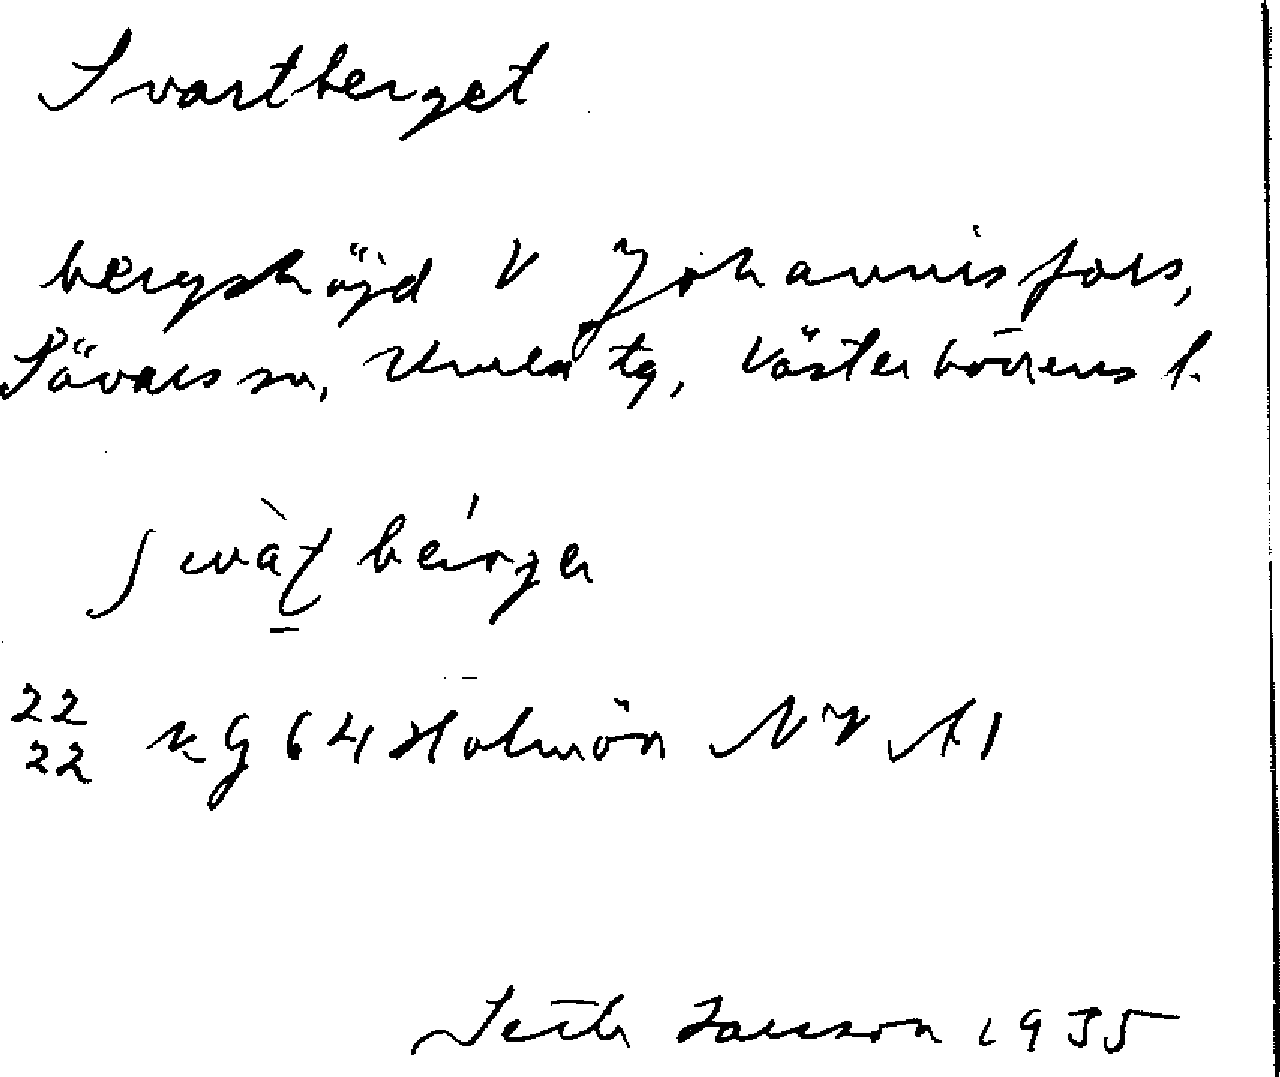 Svartberget
bergshöjd V Johannisfors,
Sävars sn, Umeå tg, Västerbottens l.
22
22 KG 64 Holmön NV A1
Seth Jansson 1935